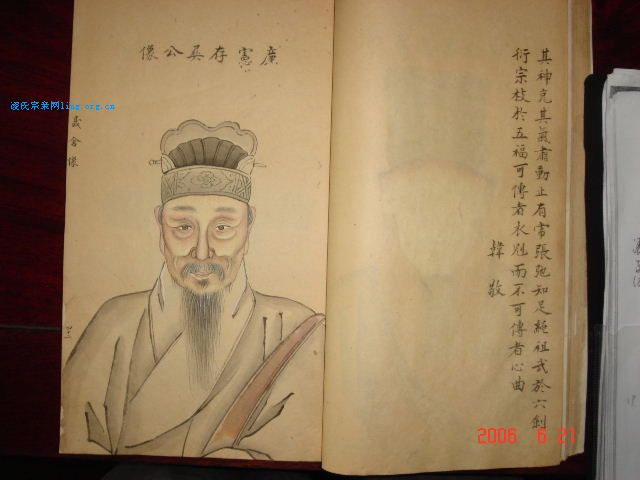 凌氏宗亲网ling.org.cn
廣憲存吳公像
其神克其氣肅動止有常張弛知足繩祖武於六
衍宗枝於五福可傳者而不可傳者心曲
韓敬
晟舍
2006 6 21